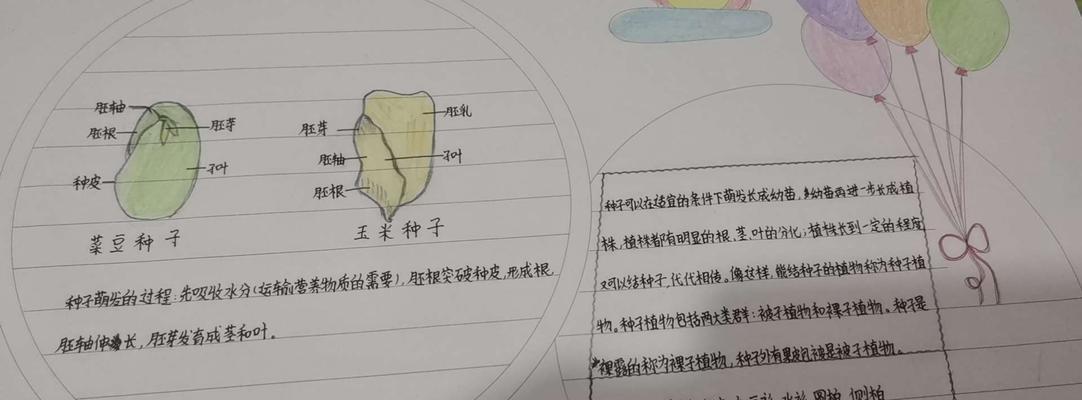 胚轴
胚根
种皮
胚芽
子叶
菜豆种子
胚芽
胚轴
胚根
胚乳
子叶
玉米种子
种子萌发的过程:先吸收水分(运输营养物质的需要),胚根突破种皮,形成根,
胚轴伸长,胚芽发育成茎和叶。
种子可以在适宜的条件下萌发长成幼苗,幼苗再进一步长成植
株,植株都有明显的根、茎、叶的分化;植株长到一定的程度
又可以结种子,代代相传。像这样,能结种子的植物称为种子植
物。种子植物包括两大类群:被子植物和裸子植物。种子是
裸露的称为裸子植物,种子外有果皮包被是被子植物。
水杉、圆柏、侧柏